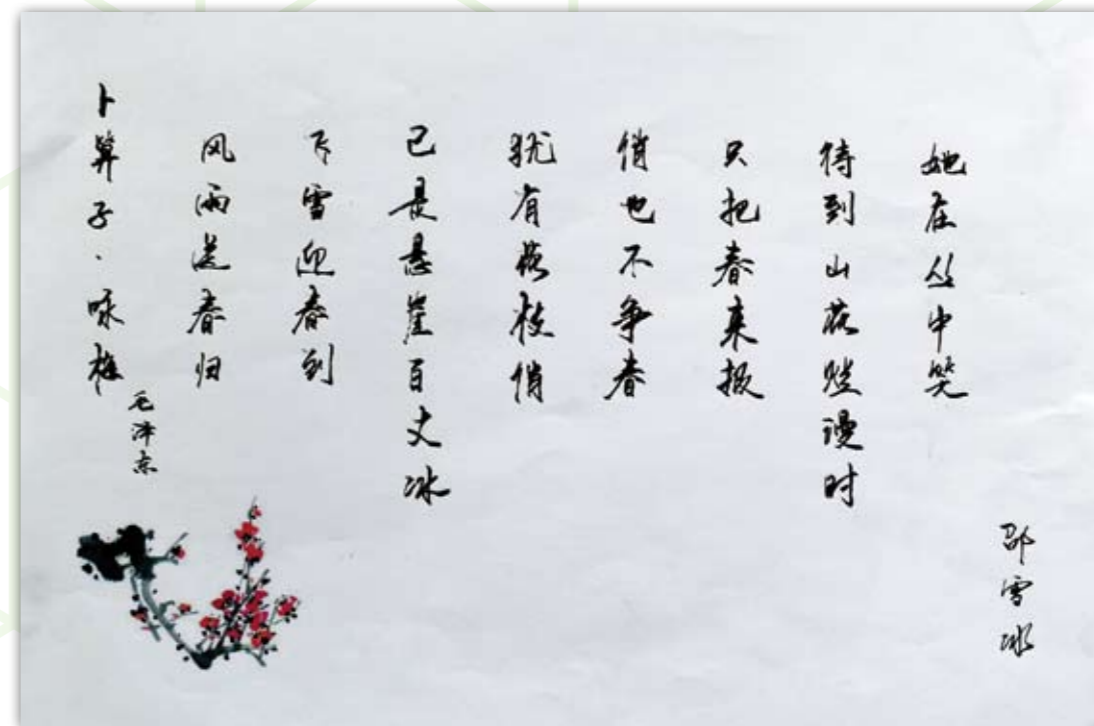 卜算子·咏梅
毛泽东
风雨送春归
飞雪迎春到
已是悬崖百丈冰
犹有花枝俏
俏也不争春
只把春来报
待到山花烂漫时
她在丛中笑
邵雪冰